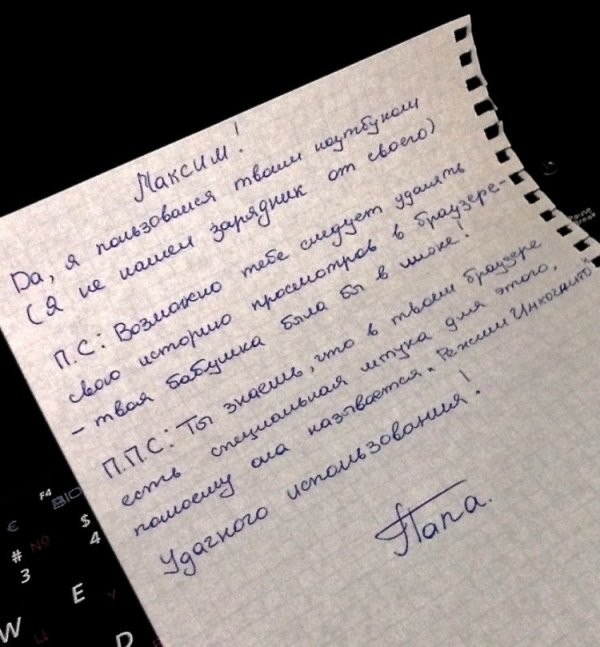 Максим!
Да, я пользовался твоим ноутбуком
(Я не нашел зарядник от своего)
П.С: Возможно тебе следует удалять
свою историю просмотров в браузере-
- твоя бабушка была бы в шоке!
П.П.С: Ты знаешь, что в твоем браузере
есть специальная штука для этого,
помоему она называется "Режим Инкогнито"
Удачного использования!
Папа.
F4
BIO
€
$
#
NO
4
3
W
Ц
E
У
D